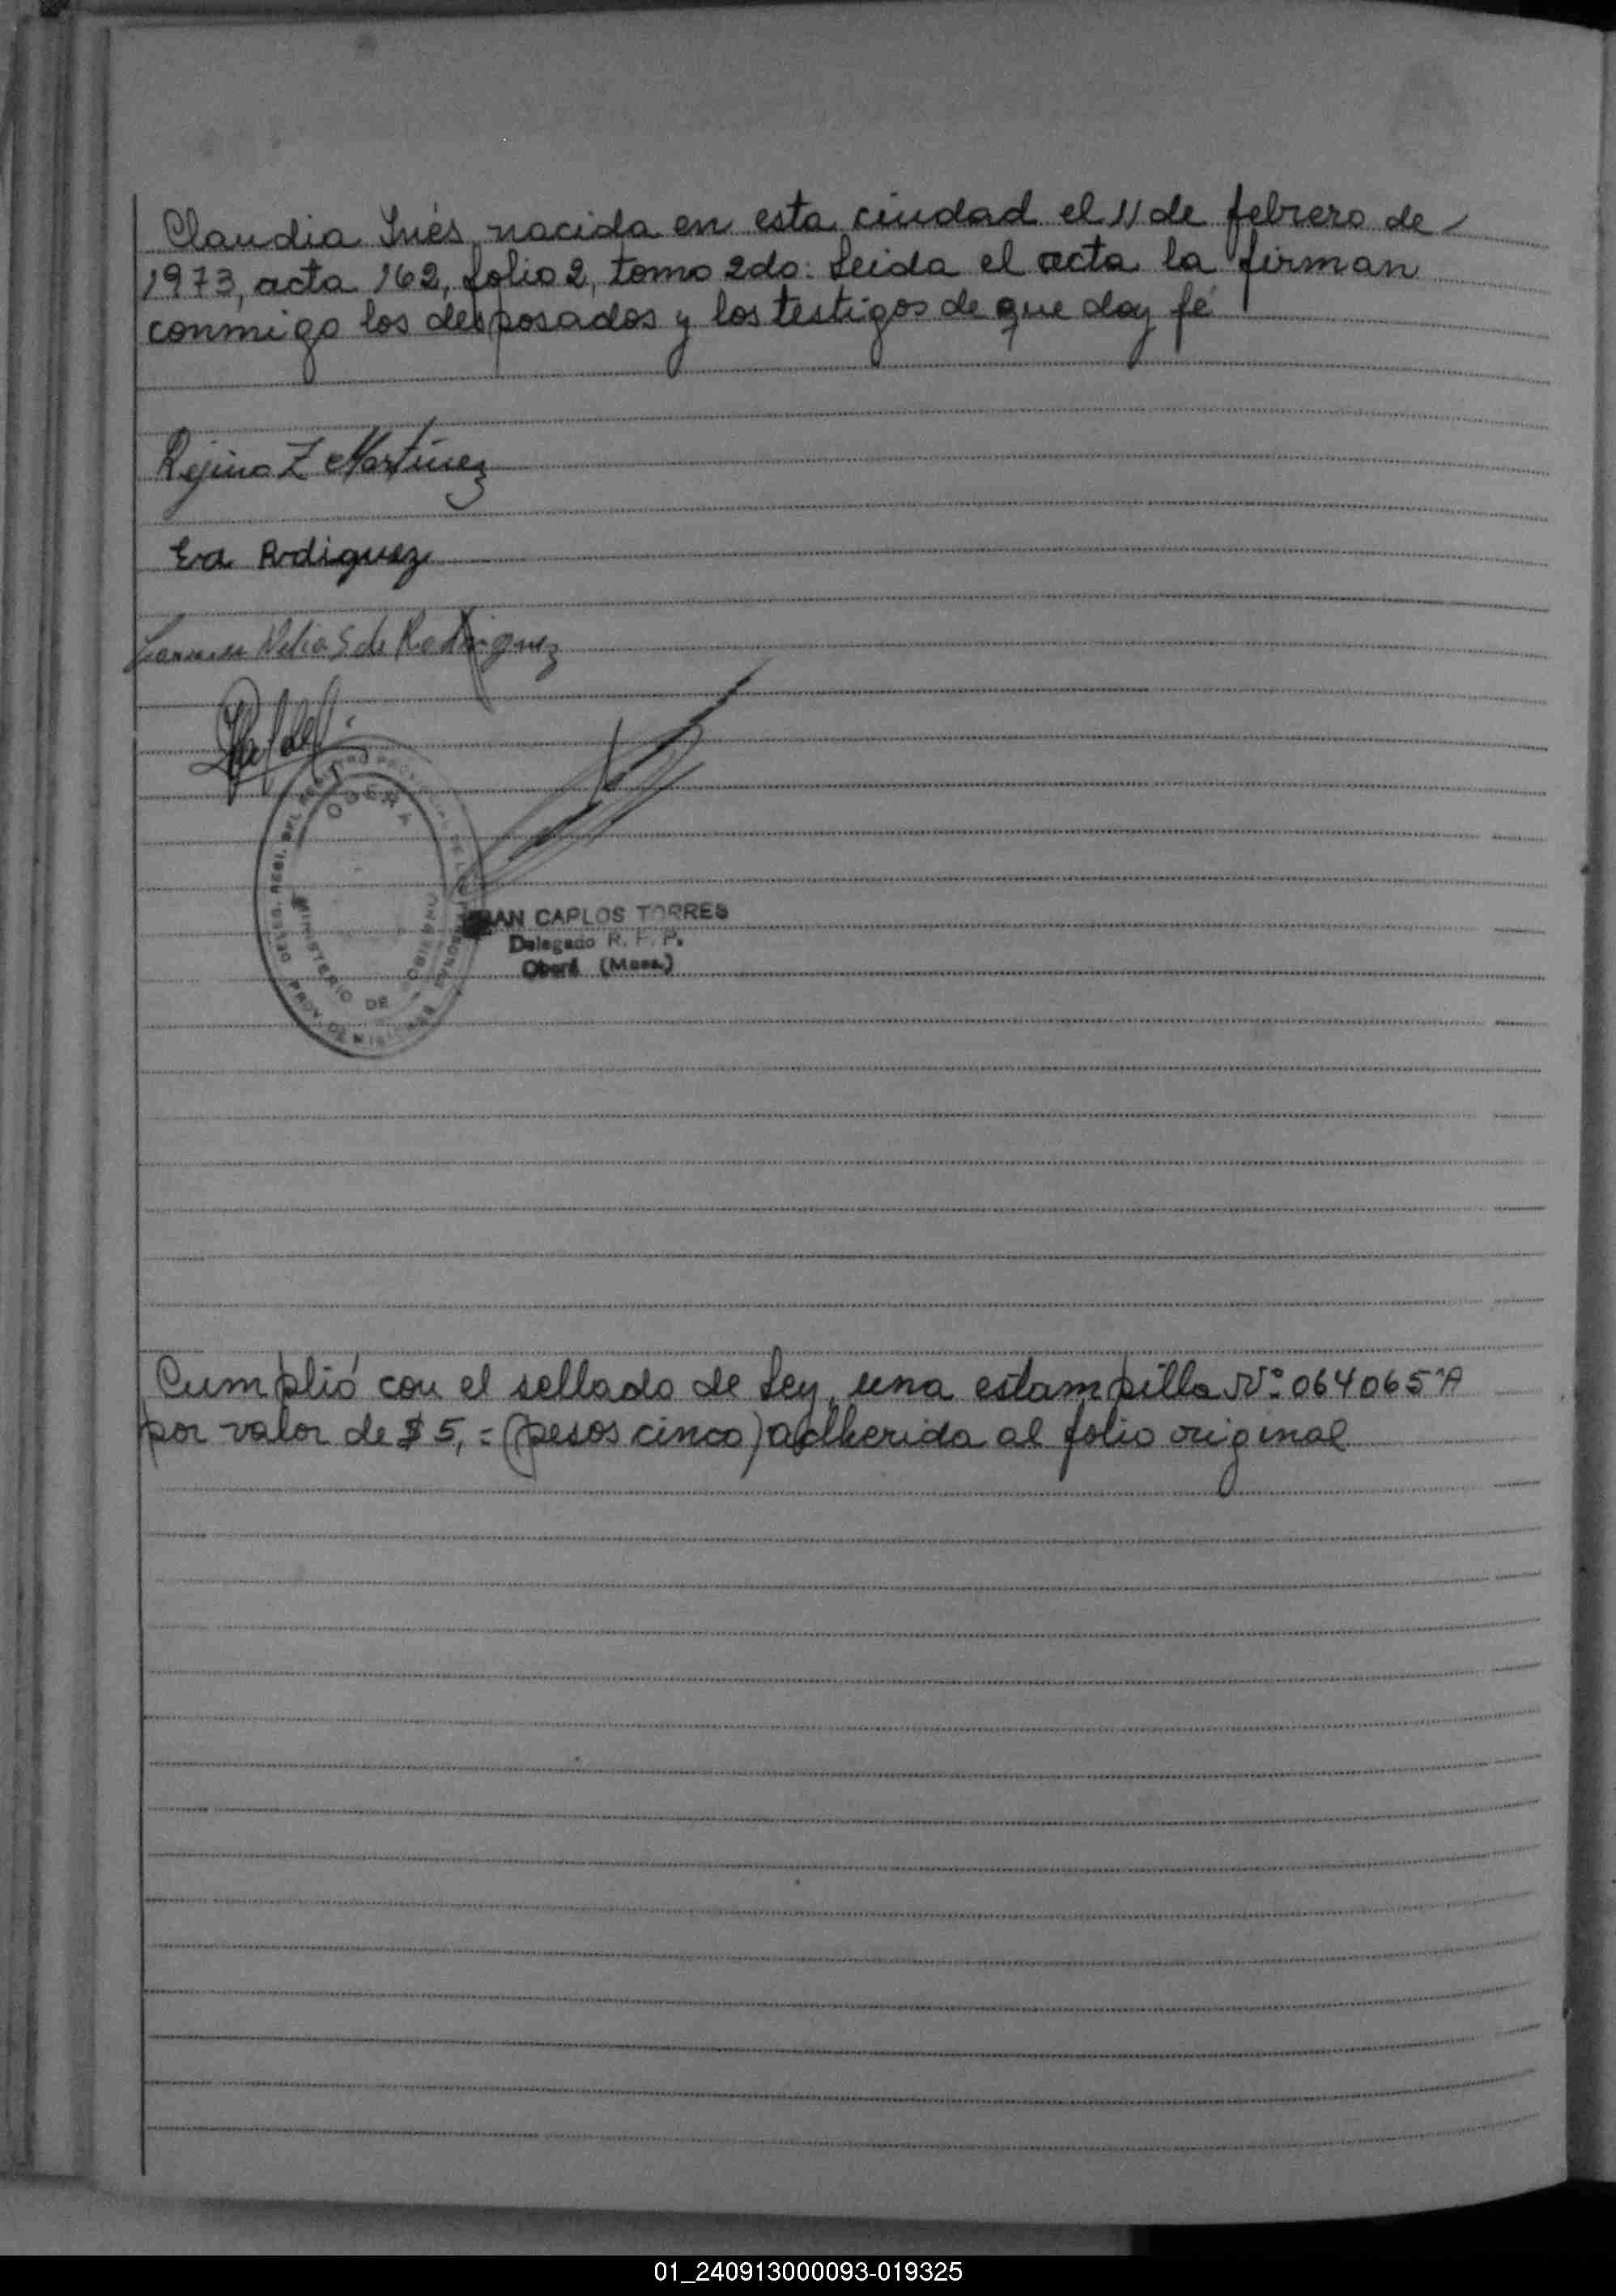 Claudia Inés, nacida en esta ciudad el 11 de febrero de
1973, acta 162, folio 2, tomo 2do: Leida el acta la firman
conmigo los desposados y los testigos de que doy fé
Regino Z Martinez
Eva Rodiguez
S de Rodriguez
OBERA
MINISTERIO DE GOBIERNO
AN CARLOS TORRES
Delegado R. P. P.
Oberá (Mnes.)
Cumplió con el sellado de Ley, una estampilla Nº 064065 "A
por valor de $ 5,= (pesos cinco) adherida al folio original
01_240913000093-019325